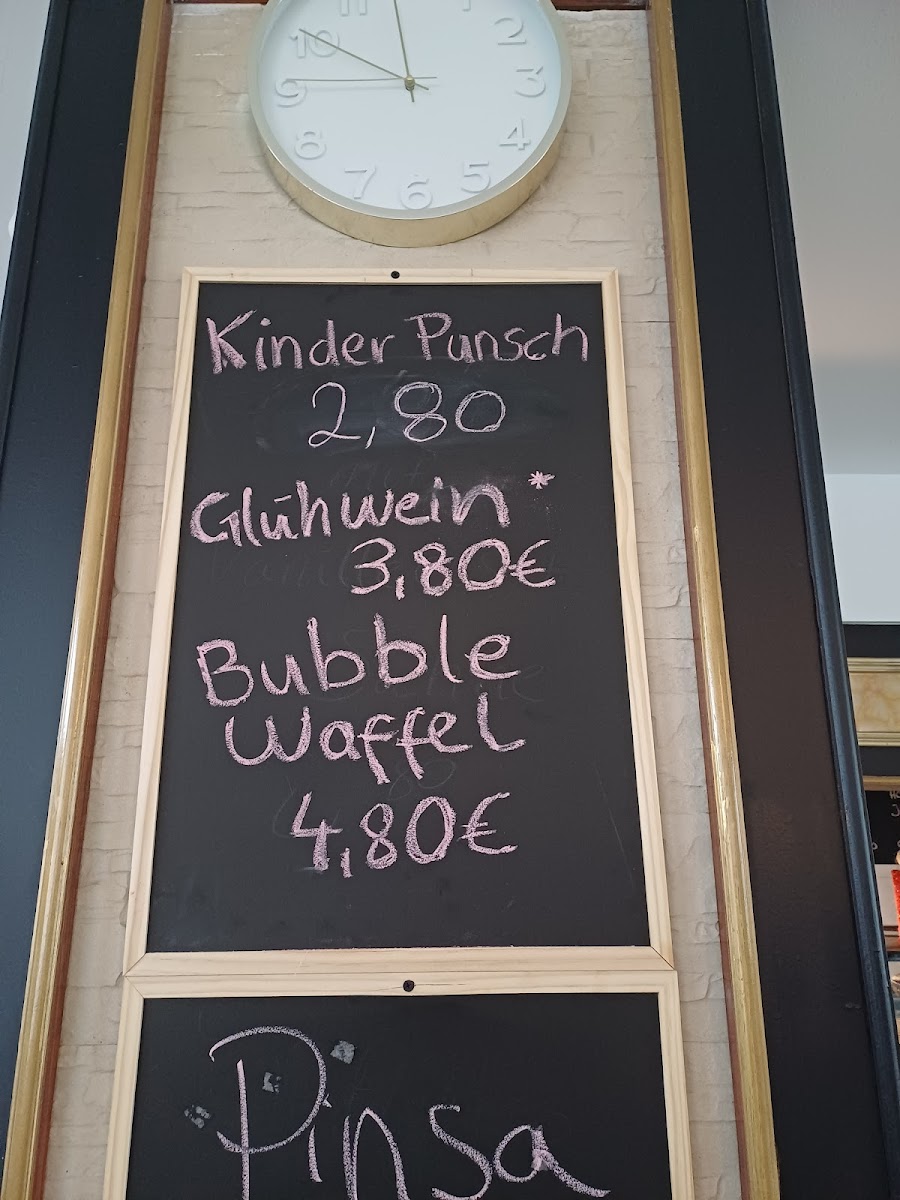 11 1
10 2
9 3
8 4
7 6 5
Kinder Punsch
2,80
Glühwein*
3,80€
Bubble
Waffel
4,80€
Pinsa